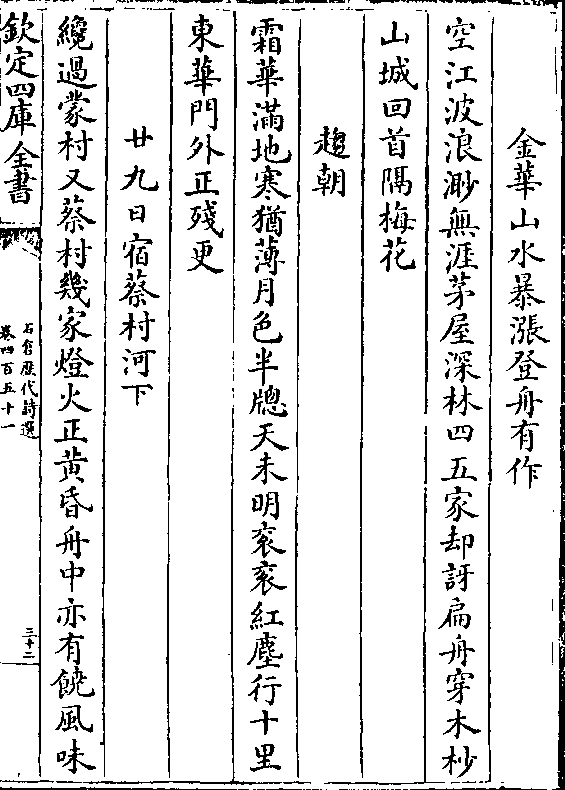 金華山水暴漲登舟有作
空江波浪渺無涯茅屋深林四五家却訝扁舟穿木杪
山城回首隔梅花
趨朝
霜華滿地寒猶薄月色半牕天未明衮衮紅塵行十里
東華門外正殘更
廿九日宿蔡村河下
纔過蒙村又蔡村幾家燈火正黄昏舟中亦有饒風味
欽定四庫全書
石倉歷代詩選
卷四百五十一
三十二